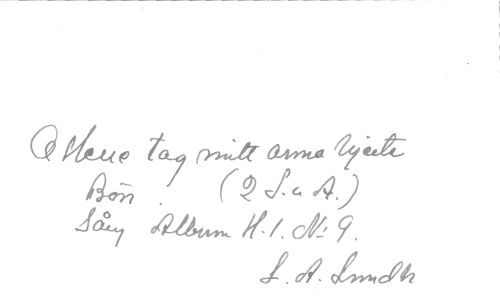 O Herre tag mitt arma hjerta
Bön. (2 S. o A.)
Sång Album H. 1. No 9.
L. A. Lundh